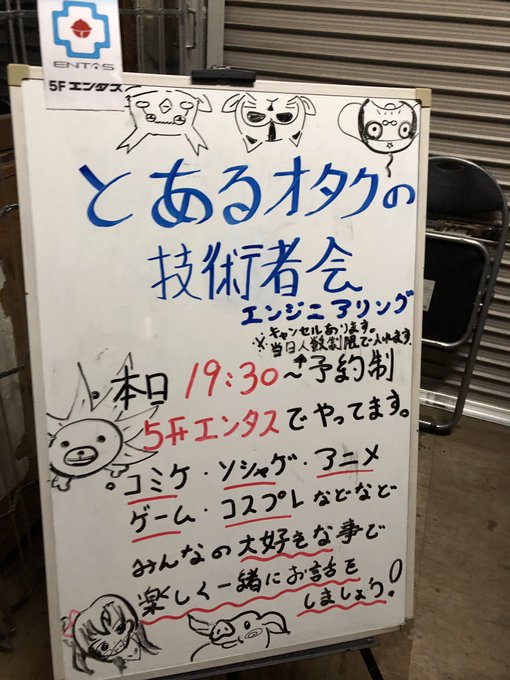 ENTAS
5F エンタス
とあるオタクの
技術者会
エンジニアリング
※キャンセルあります。
当日人数制限で入れます
本日 19:30〜予約制
5Fエンタスでやってます。
コミケ・ソシャゲ・アニメ
ゲーム・コスプレなどなど
みんなの大好きな事で
楽しく一緒にお話を
しましょう!